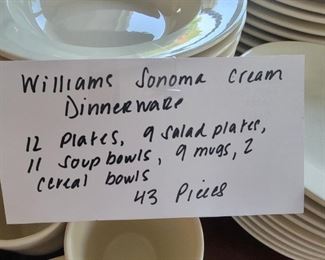 Williams Sonoma Cream
Dinnerware
12 Plates, 9 salad plates,
11 soup bowls, 9 mugs, 2
cereal bowls
43 Pieces